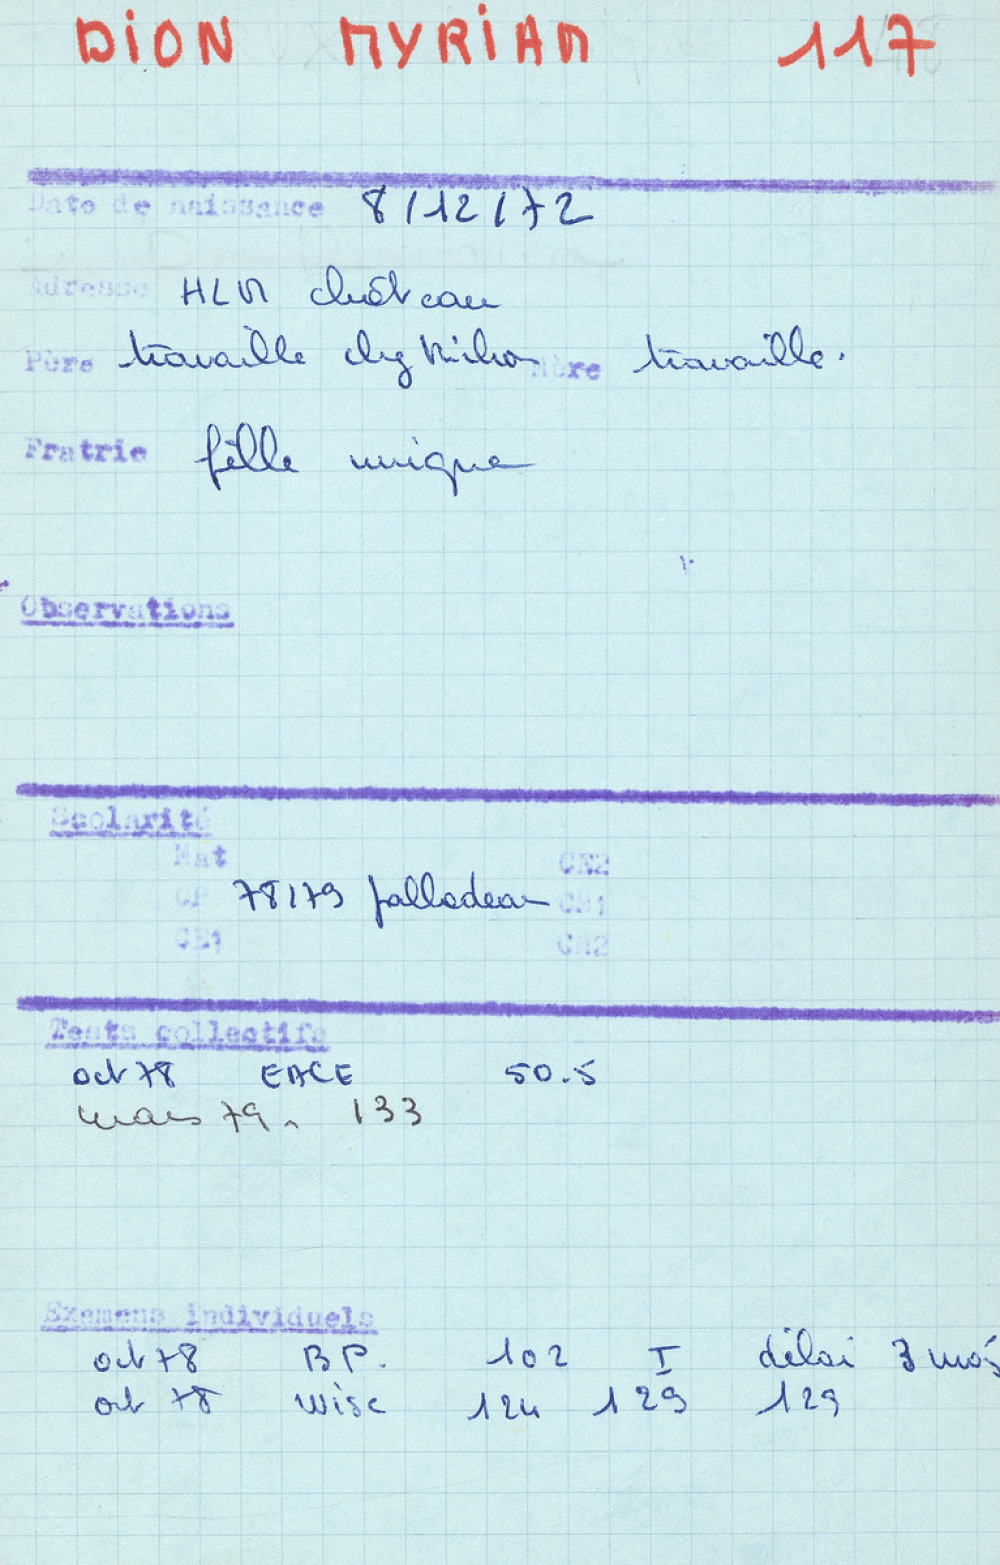 DION MYRIAM 117
Date de naissance 8/12/72
Adresse HLM château
Père travaille chez Mère travaille.
Fratrie fille unique
Observations
Scolarité
Mat CE2
CP 78/79 CM1
CE1 CM2
Tests collectifs
oct 78 50.5
mars 79. 133
Examens individuels
oct 78 B.P. 102 I délai 3 mois
oct 78 Wisc 124 129 129